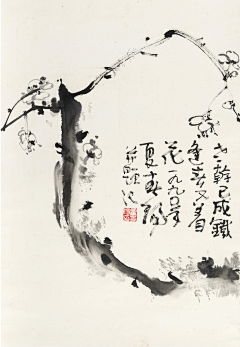 老幹已成鐵
逢春又著
花一九九〇年
夏十發